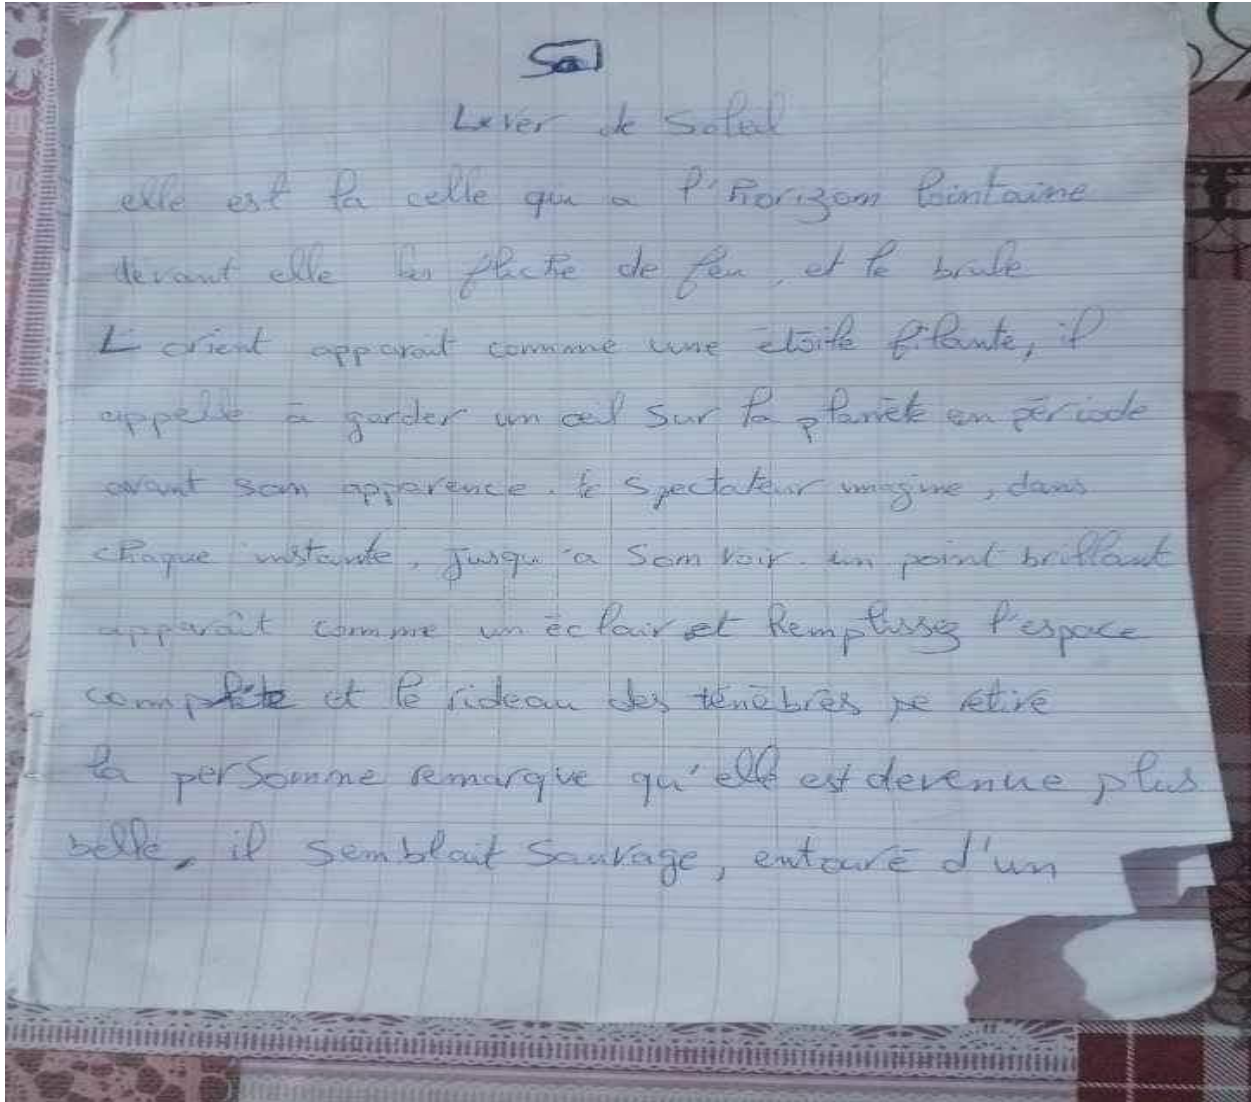 Lever de Soleil
elle est la celle qui a l'horizom lointaine
devant elle les flèche de feu, et le brule
L orient apparait comme une étoile filante, il
appelle à garder un œil sur la planète en période
avant som apparence. le spectateur imagine, dans
chaque instante, jusqu'a Som voir. un point brillant
apparaît comme un éclair et Remplissez l'espace
complète et le rideau des ténèbres se retire
la persomne remarque qu'elle est devenue plus
belle, il semblait Sauvage, entouré d'un